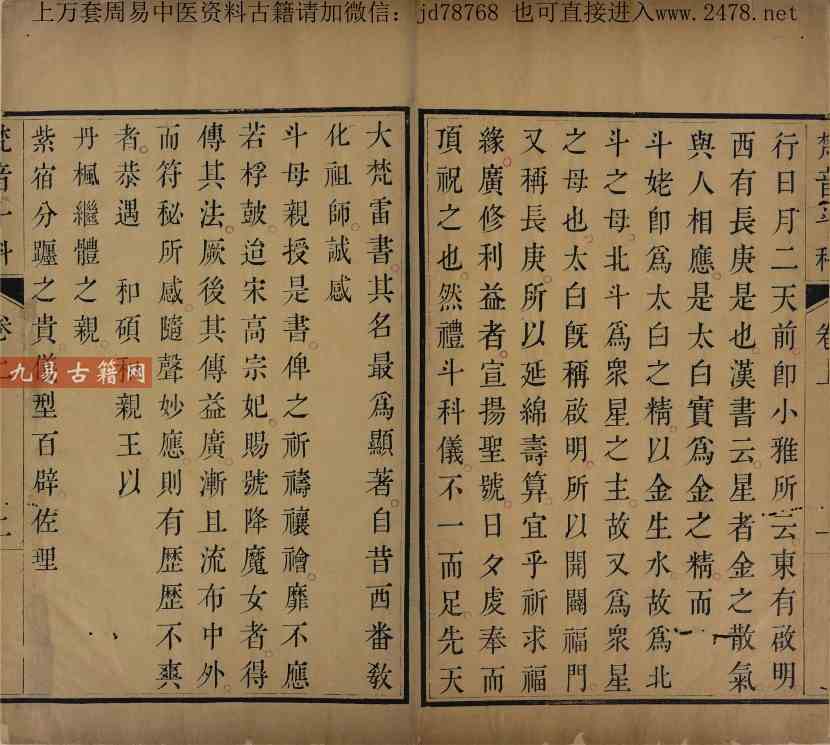 上万套周易中医资料古籍请加微信：jd78768 也可直接进入www.2478.net
行日月二天前卽小雅所云東有啟明
西有長庚是也漢書云星者金之散氣
與人相應是太白實爲金之精而
斗姥卽爲太白之精以金生水故爲北
斗之母北斗爲衆星之主故又爲衆星
之母也太白旣稱啟明所以開闢福門
又稱長庚所以延綿壽算宜乎祈求福
緣廣修利益者宣揚聖號日夕虔奉而
頂祝之也然禮斗科儀不一而足先天
大梵雷書其名最爲顯著自昔西番敎
化祖師誠感
斗母親授是書俾之祈禱禳禬靡不應
若桴鼓迨宋高宗妃賜號降魔女者得
傳其法厥後其傳益廣漸且流布中外
而符秘所感隨聲妙應則有歷歷不爽
者恭遇 和碩 親王以
丹楓繼體之親
紫宿分躔之貴 型百辟佐理
九易古籍网